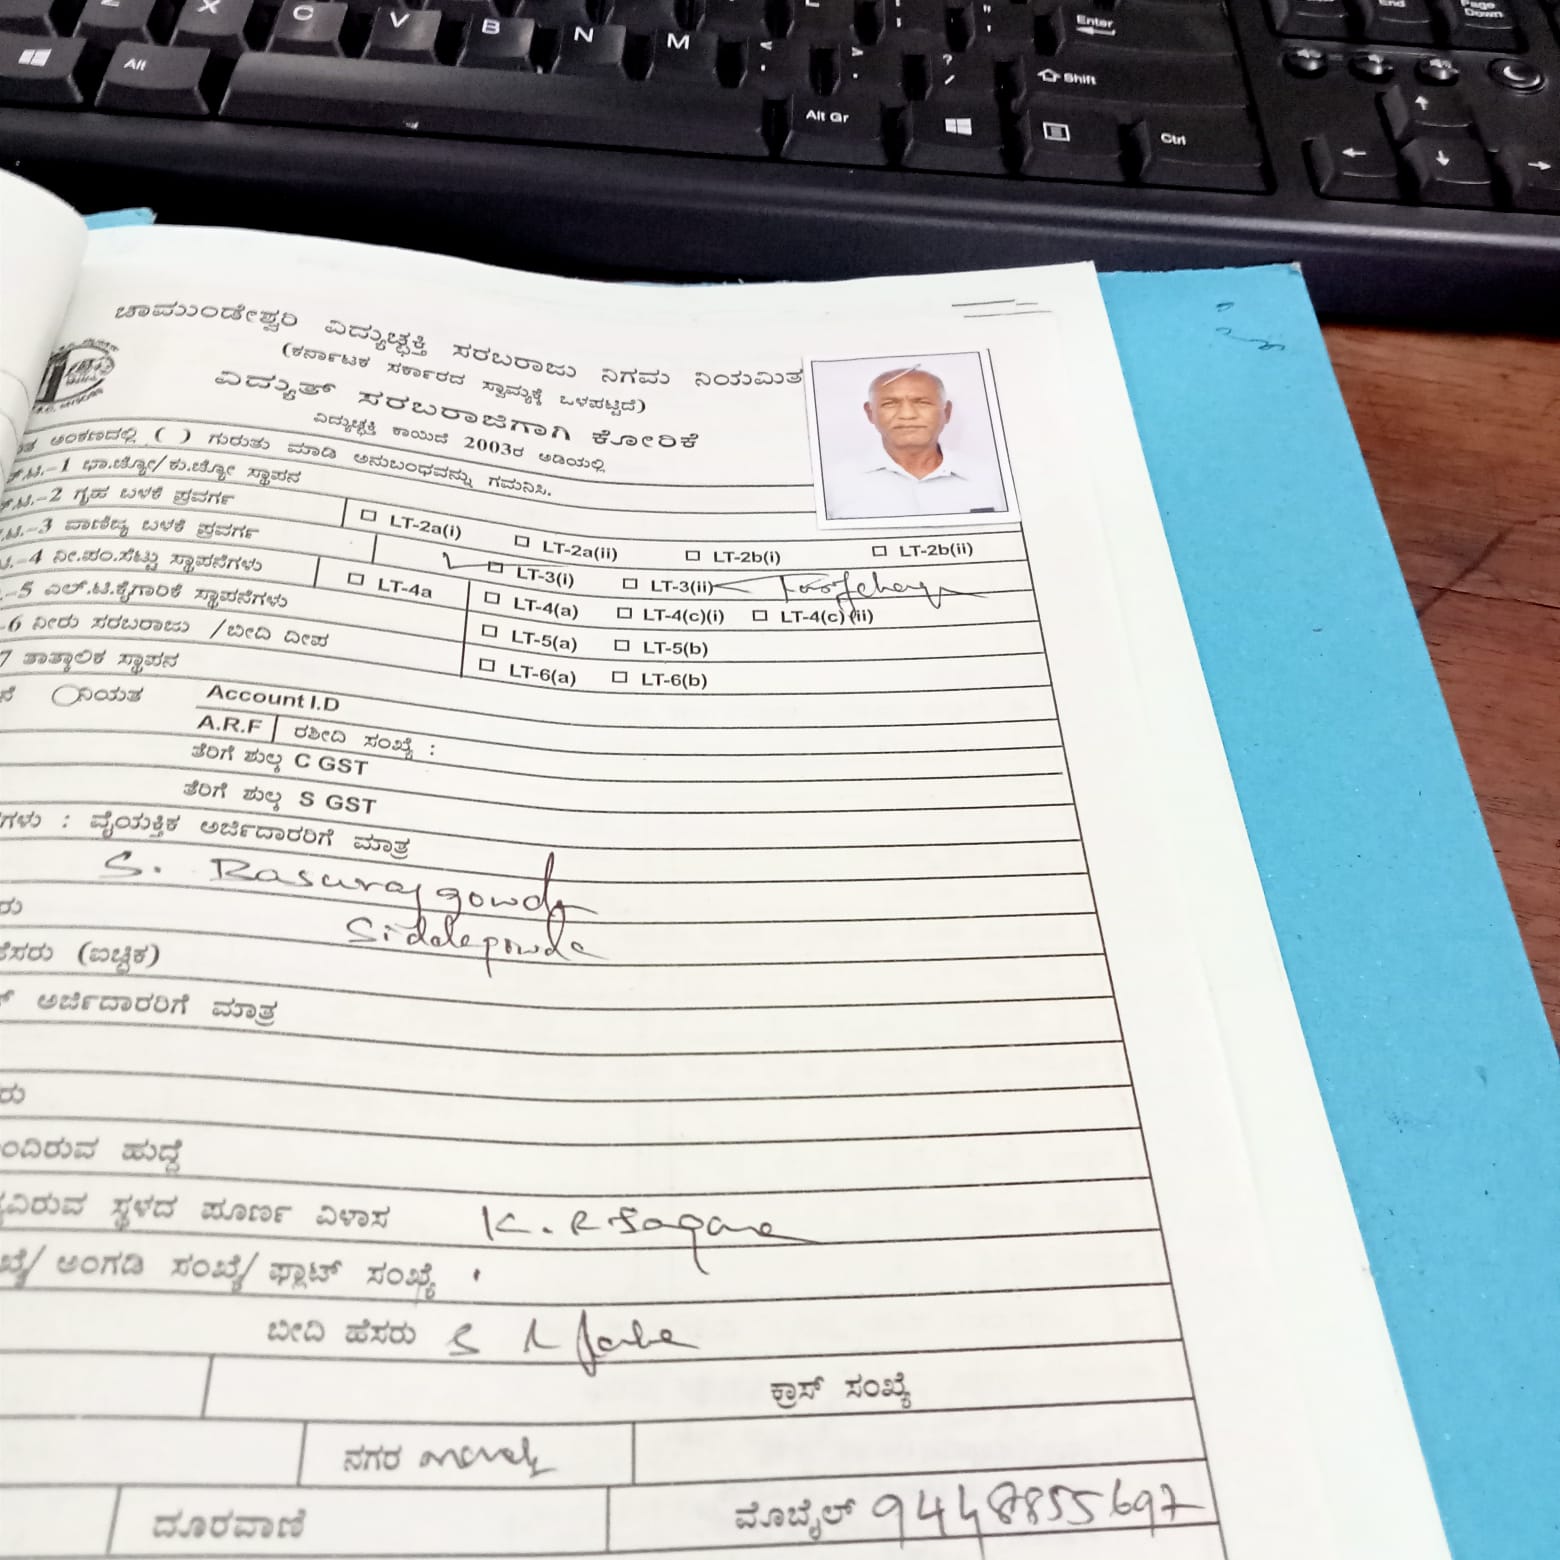 X C V B N M < > ? / Enter End Page Down
Alt Alt Gr Shift Ctrl
ಚಾಮುಂಡೇಶ್ವರಿ ವಿದ್ಯುಚ್ಛಕ್ತಿ ಸರಬರಾಜು ನಿಗಮ ನಿಯಮಿತ
(ಕರ್ನಾಟಕ ಸರ್ಕಾರದ ಸ್ವಾಮ್ಯಕ್ಕೆ ಒಳಪಟ್ಟಿದೆ)
ವಿದ್ಯುತ್ ಸರಬರಾಜಿಗಾಗಿ ಕೋರಿಕೆ
ವಿದ್ಯುಚ್ಛಕ್ತಿ ಕಾಯಿದೆ 2003ರ ಅಡಿಯಲ್ಲಿ
ಅಂಕಣದಲ್ಲಿ ( ) ಗುರುತು ಮಾಡಿ ಅನುಬಂಧವನ್ನು ಗಮನಿಸಿ.
.ಟಿ.-1 ಭಾ.ಜ್ಯೋ/ಕು.ಜ್ಯೋ ಸ್ಥಾಪನ
.ಟಿ.-2 ಗೃಹ ಬಳಕೆ ಪ್ರವರ್ಗ LT-2a(i) LT-2a(ii) LT-2b(i) LT-2b(ii)
.ಟಿ.-3 ವಾಣಿಜ್ಯ ಬಳಕೆ ಪ್ರವರ್ಗ LT-3(i) LT-3(ii)
-4 ನೀ.ಪಂ.ಸೆಟ್ಟು ಸ್ಥಾಪನೆಗಳು LT-4a LT-4(a) LT-4(c)(i) LT-4(c)(ii)
-5 ಎಲ್.ಟಿ.ಕೈಗಾರಿಕೆ ಸ್ಥಾಪನೆಗಳು LT-5(a) LT-5(b)
-6 ನೀರು ಸರಬರಾಜು /ಬೀದಿ ದೀಪ LT-6(a) LT-6(b)
7 ತಾತ್ಕಾಲಿಕ ಸ್ಥಾಪನ
ನಿಯತ Account I.D
A.R.F ರಶೀದಿ ಸಂಖ್ಯೆ :
ತೆರಿಗೆ ಶುಲ್ಕ C GST
ತೆರಿಗೆ ಶುಲ್ಕ S GST
ಗಳು : ವೈಯಕ್ತಿಕ ಅರ್ಜಿದಾರರಿಗೆ ಮಾತ್ರ
S. Basurajgowda
ರು Siddegowda
ಹೆಸರು (ಐಚ್ಛಿಕ)
ಅರ್ಜಿದಾರರಿಗೆ ಮಾತ್ರ
ರು
ಂದಿರುವ ಹುದ್ದೆ
ವಿರುವ ಸ್ಥಳದ ಪೂರ್ಣ ವಿಳಾಸ K. R
ಖ್ಯೆ/ ಅಂಗಡಿ ಸಂಖ್ಯೆ/ ಫ್ಲಾಟ್ ಸಂಖ್ಯೆ
ಬೀದಿ ಹೆಸರು
ಕ್ರಾಸ್ ಸಂಖ್ಯೆ
ನಗರ
ದೂರವಾಣಿ ಮೊಬೈಲ್ 9448855697